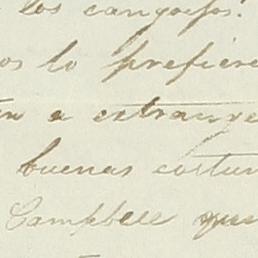 los cangrejos.
os lo prefiere
n a estrange
buenas costum
Campbell que